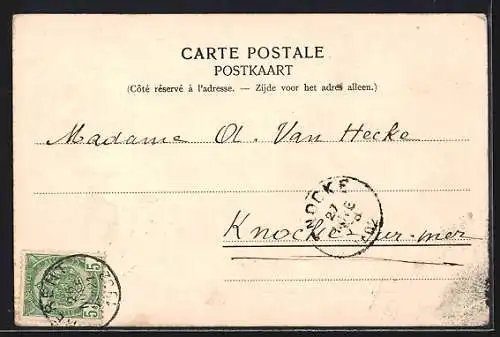 CARTE POSTALE
POSTKAART
(Côté réservé à l'adresse. — Zijde voor het adres alleen.)
Madame A. Van Hecke
KNOCKE
27
Knocke sur-mer
5 5